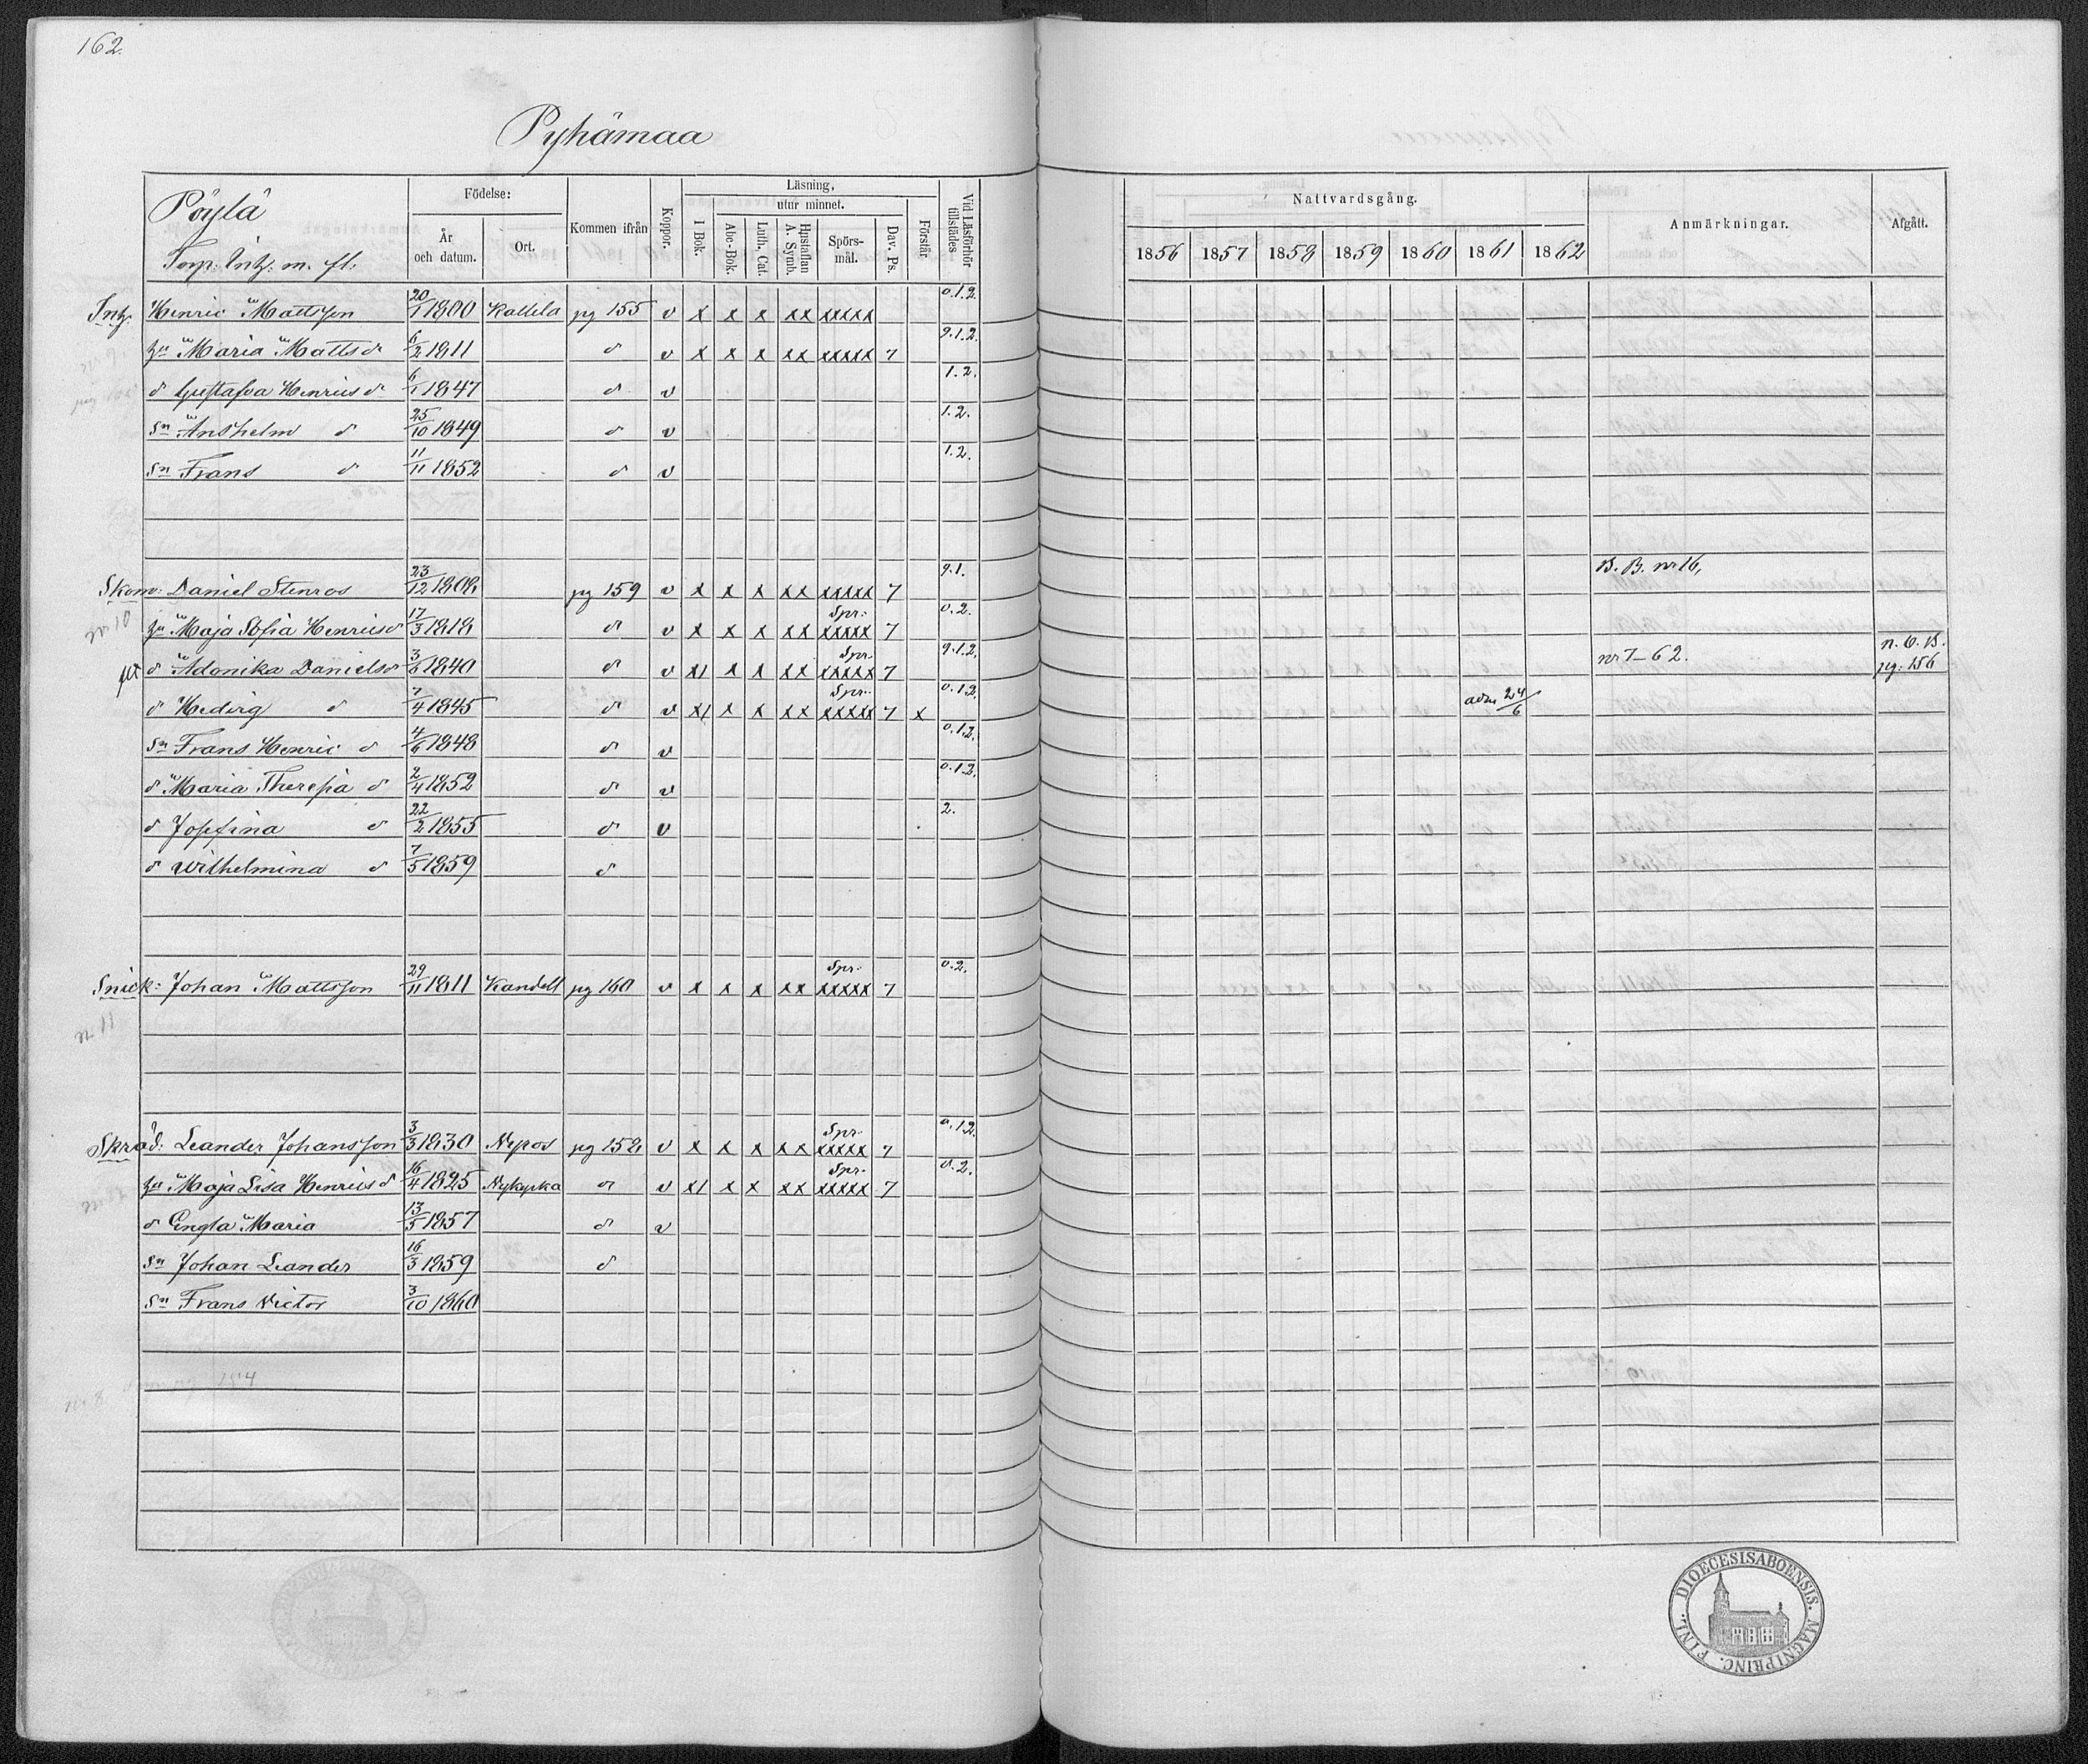 162.
Pyhämaa
Pöylä
Torp: Inh: m. fl.
Födelse:
År och datum.
Ort.
Kommen ifrån
Koppor.
Läsning,
utur minnet.
I Bok.
Abc-Bok.
Luth. Cat.
Hustaflan A. Symb.
Spörsmål.
Dav. Ps.
Förstår.
Vid Läsförhör tillstädes
Nattvardsgång.
1856 1857 1858 1859 1860 1861 1862
Anmärkningar.
Afgått.
Inh: Henric Mattsson 20/1 1800 Kallila pg 155 v x x x xx xxxxx 0.1.2.
hu Maria Mattsd 6/2 1811 d v x x x xx xxxxx 7 9.1.2.
d Gustafva Henricsd 6/1 1847 d v 1.2.
Sn Anshelm d 25/10 1849 d v 1.2.
Sn Frans d 11/11 1852 d v 1.2.
Skom: Daniel Stenros 23/12 1808 pg 159 v x x x xx xxxxx 7 9.1. B. B. nr 16,
nr 10
hu Maja Sofia Henricsd 17/3 1818 d v x x x xx Spr: xxxxx 7 0.2.
d Adonika Danielsd 3/6 1840 d v x/ x x xx Spr. xxxxx 7 9.1.2. nr 7-62. n. C. B. pg: 156
d Hedvig d 7/4 1845 d v x/ x x xx Spr. xxxxx 7 x 0.1.2. adm 24/6
Sn Frans Henric d 4/6 1848 d v 0.1.2.
d Maria Theresia d 2/4 1852 d v 0.1.2.
d Josefina d 22/2 1855 d v 2.
d Wilhelmina d 7/5 1859 d
Snick: Johan Mattsson 29/11 1811 Kandelt pg 160 v x x x xx Spr. xxxxx 7 0.2.
nr 11
Skräd: Leander Johansson 3/3 1830 Nypos pg 152 v x x x xx Spr. xxxxx 7 0.1.2.
hu Maja Lisa Henricsd 16/4 1825 Nykyrka d v x/ x x xx Spr. xxxxx 7 0.2.
d Engla Maria 13/5 1857 d v
Sn Johan Leander 16/3 1859 d
Sn Frans Victor 3/10 1860
DIOECESIS ABOENSIS. MAGNI PRINC. FINL.